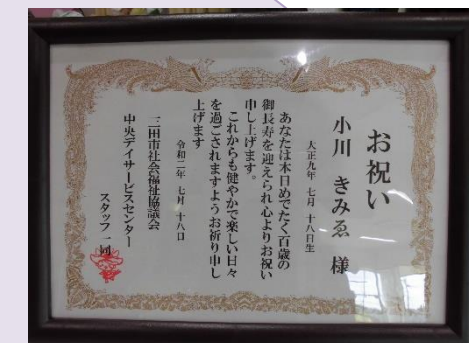 お祝い
小川 きみゑ 様
大正九年 七月 十八日生
あなたは本日めでたく百歳の
御長寿を迎えられ心よりお祝い
申し上げます。
これからも健やかで楽しい日々
を過ごされますようお祈り申し
上げます
令和二年 七月 十八日
三田市社会福祉協議会
中央デイサービスセンター
スタッフ一同